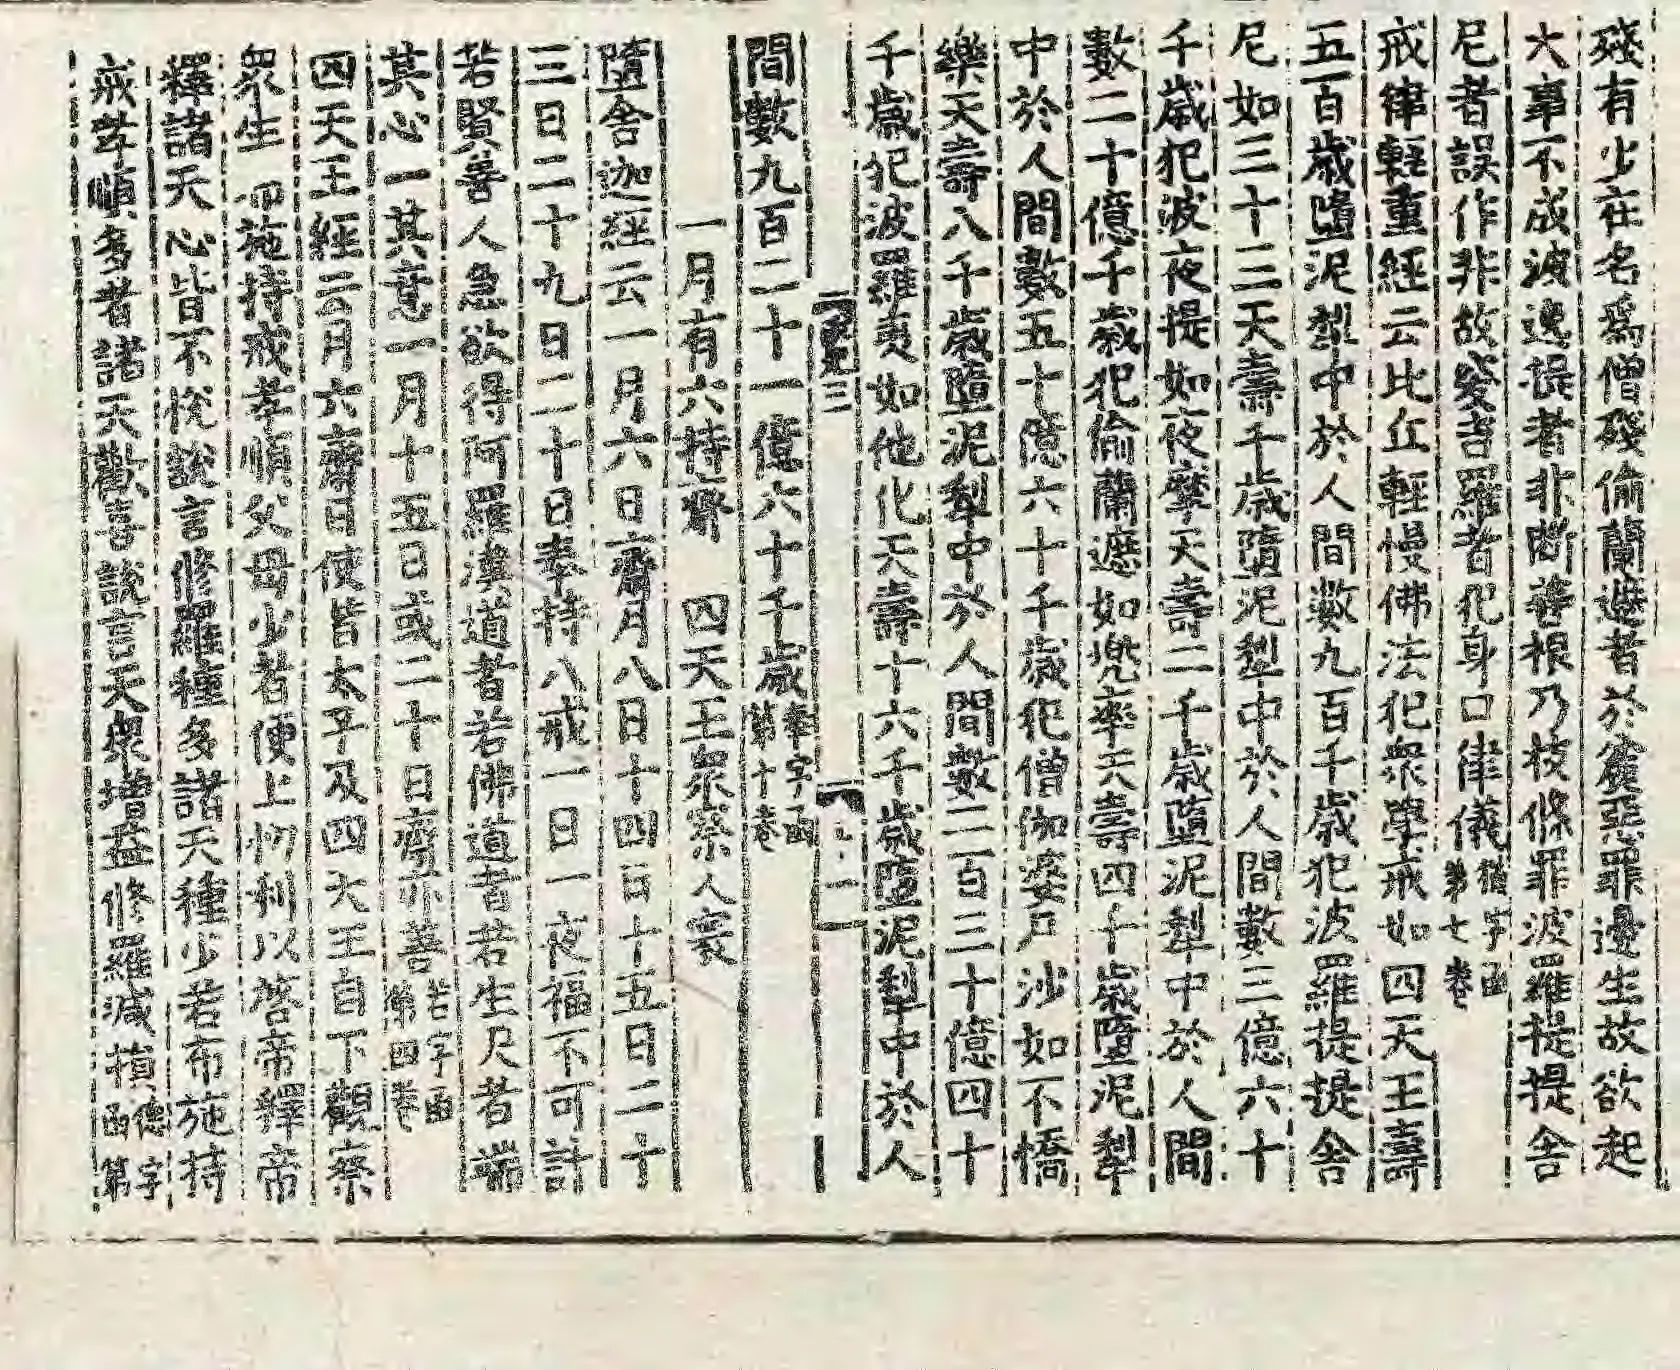 殘有少在名爲僧殘偷蘭遮者於麁惡罪邊生故欲起
大事不成波逸提者非斷善根乃枝條罪波羅提提舍
尼者誤作非故突吉羅者犯身口律儀 猶字函第七卷
戒律輕重經云比丘輕慢佛法犯衆學戒如四天王壽
五百歲墮泥犁中於人間數九百千歲犯波羅提提舍
尼如三十三天壽千歲墮泥犁中於人間數三億六十
千歲犯波夜提如夜摩天壽二千歲墮泥犁中於人間
數二十億千歲犯偷蘭遮如兠率天壽四千歲墮泥犁
中於人間數五十億六十千歲犯僧伽婆尸沙如不憍
樂天壽八千歲墮泥犁中於人間數二百三十億四十
千歲犯波羅夷如他化天壽十六千歲墮泥犁中於人
三
間數九百二十一億六十千歲 奉字函第十卷
一月有六持齋 四天王衆察人寰
墮舍迦經云一月六日齋月八日十四日十五日二十
三日二十九日二十日奉持八戒一日一夜福不可計
若賢善人急欲得阿羅漢道者若佛道者若生天者端
其心一其意一月十五日或二十日齋亦善 若字函第四卷
四天王經云月六齋日使皆太平及四大王自下觀察
衆生布施持戒孝順父母少者便上忉利以啓帝釋帝
釋諸天心皆不悅說言修羅種多諸天種少若布施持
戒孝順多者諸天歡喜說言天衆增益修羅減損 德字函第